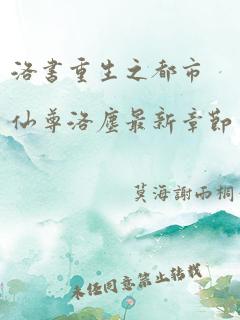 洛書重生之都市
仙尊洛塵最新章節
莫海謝雨桐
未经同意禁止转载